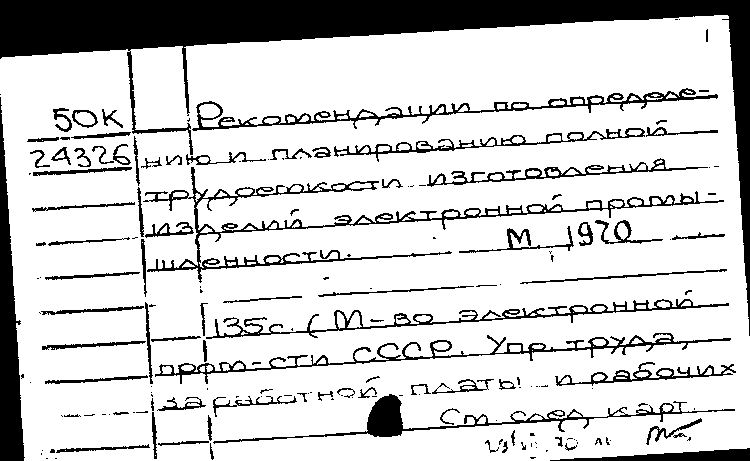 1
50К Рекомендации по определе-
24326 нию и планированию полной
трудоемкости изготовления
изделий электронной промы-
шленности. М 1970
135с. (М-во электронной
пром-сти СССР. Упр. труда,
заработной платы и рабочих
См след карт.